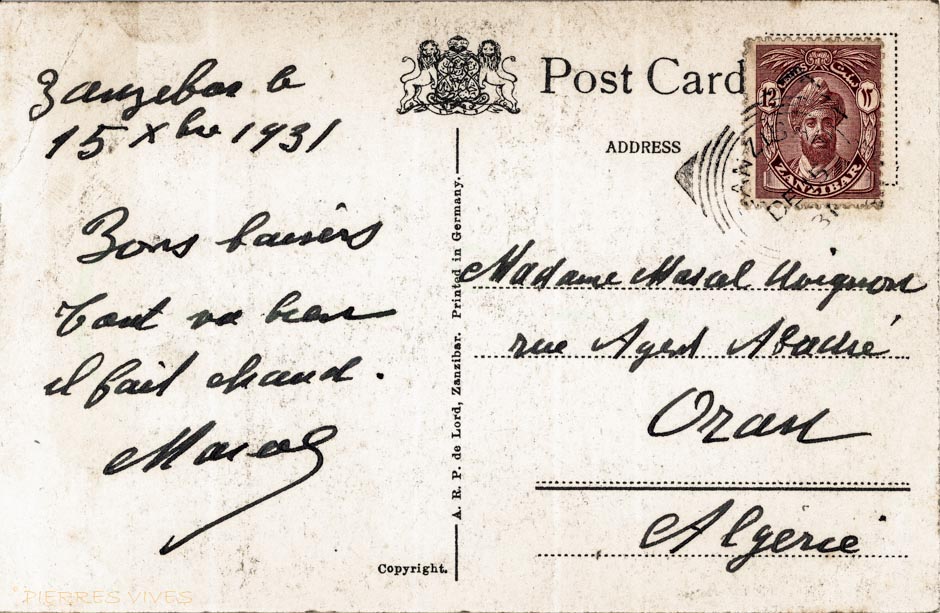 Zanzebar le
15 Xbre 1931
Bons baisers
Tout va bien
il fait chaud.
Marcel
Copyright.
A. R. P. de Lord, Zanzibar. Printed in Germany.
Post Card
ADDRESS
12 CENTS ١٢
ZANZIBAR
ZANZIBAR
DE 15
31
Madame Marcel Avignon
rue Agent Abadie
Oran
Algérie
PIERRES VIVES